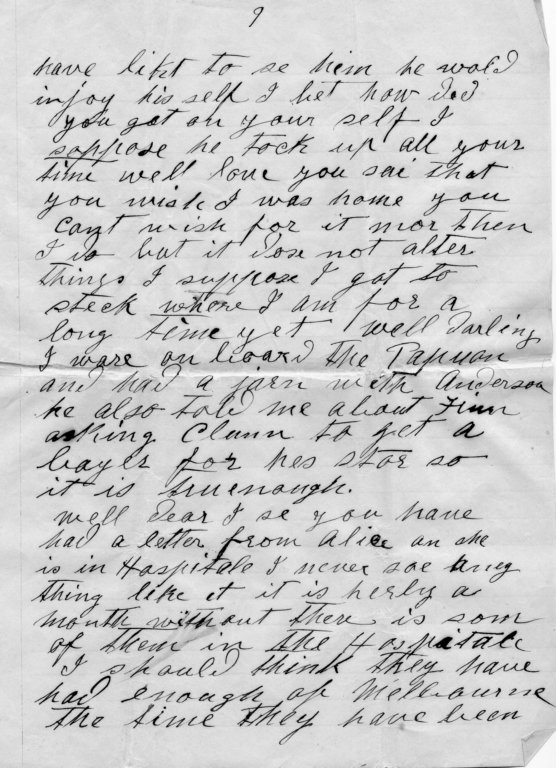 9
have likt to se him he wold
injoy his self I bet how did
you got on your self I
suppose he tock up all your
time well love you sai that
you wish I was home you
cant wish for it mor then
I do but it dose not alter
things I suppose I got to
steck where I am for a
long time yet well darling
I ware on board the Papuan
and had a jarn with Anderson
he also told me about Finn
asking Clunn to get a
bayer for hes stor so
it is truenough.
well dear I se you have
had a letter from Alice an she
is in Hospitale I never soe any
thing like it it is herly a
month without there is som
of them in the Hospitale
I should think they have
had enough of Melbourne
the time they have been